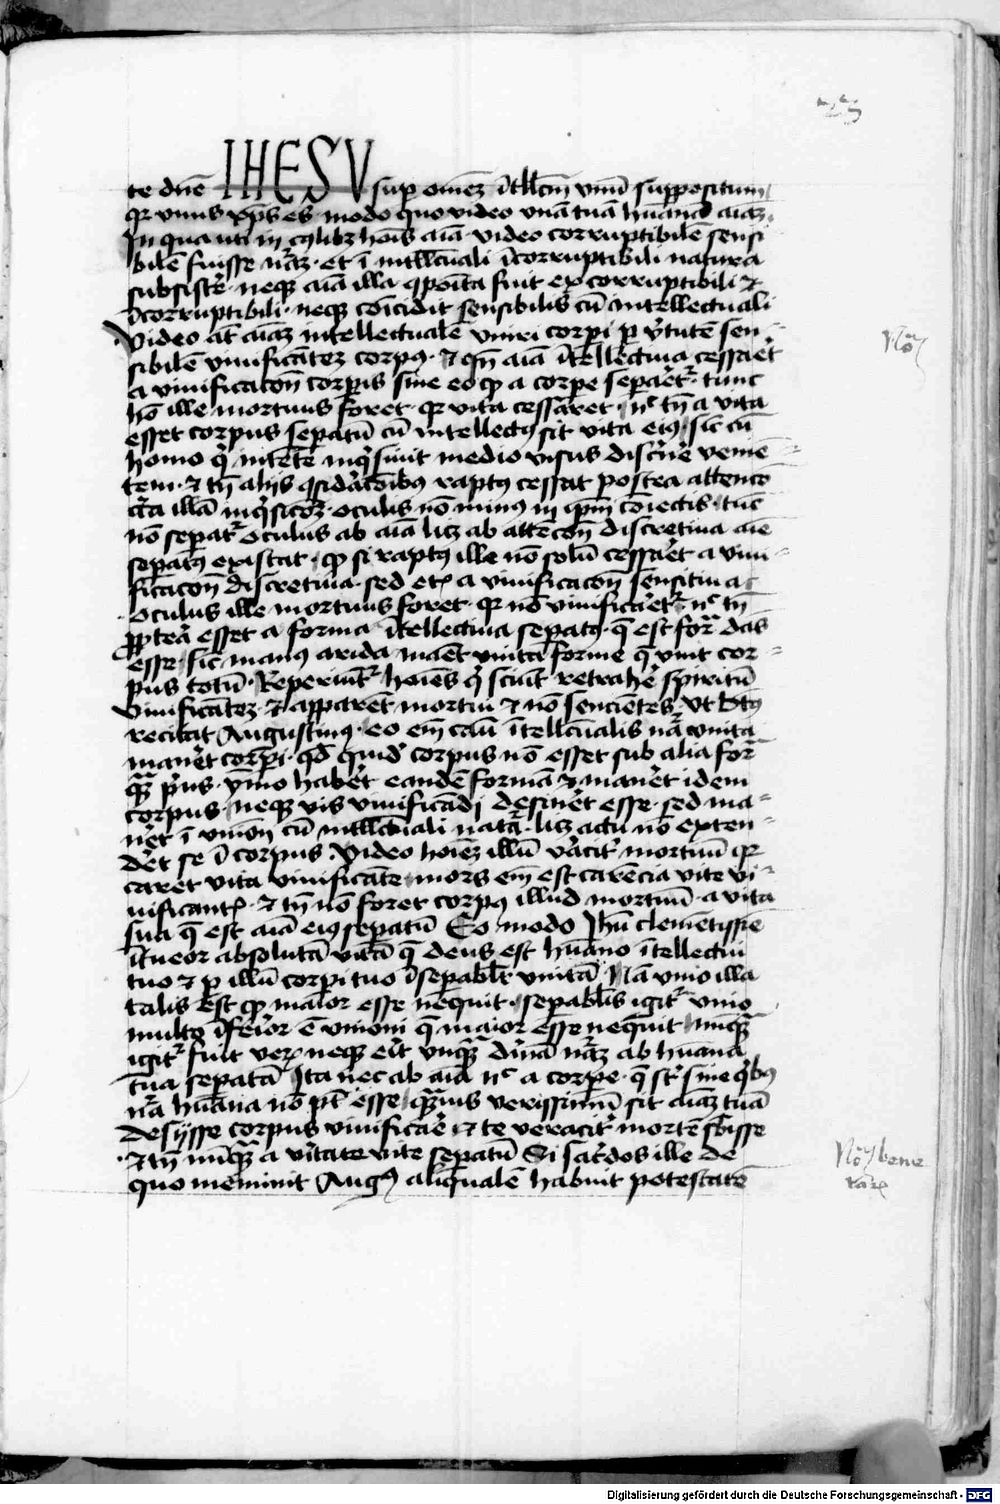 23
te dn̄e IHESV sup om̄eз ītllc̄m vnū suppositum
qr vnus xp̄s es modo quo video vnā tuā hūanā aīaз
In qua uti in cuilibз hoīs aīa video corruptibilē sensi
bilē fuisse nāз et ī intllc̄uali īcorruptibili natura
subsistē neqз aīa illa ꝯpōita fuit ex corruptibili ⁊
īcorruptibili neqз cōicidit sensibilis cū intellectuali
Video āt aīaз intellectualē vniri corpi p v̄tutē sen-
sibilē viuificātez corpꝰ ⁊ qn̄ aīa ītellectiua cessaēt
a viuificacōn corpis sine eo qꝫ a corpe sepaēt᷑ tunc
hō ille mortuus foret qr vita cessaret nͨ tn̄ a vita
esset corpus sepatū cū intellectꝰ sit vita eiꝰ sic cū
homo q̇ intēte inq̇siuit medio visus discnē venie-
tem ⁊ tn̄ alijs ꝯsidācōibꝰ raptꝰ cessat postea attencō
cca illā inq̇sicōз oculis nō minꝰ in ip̄m cōiectis tūc
nō sepat᷑ oculus ab aīa licз ab attēcōn discretiua aīe
sepatꝰ existat qꝫ si raptꝰ ille nō solū cessaēt a viui-
ficacōn discretiua sed etꝫ a viuificacōn sensitiua
oculus ille mortuus foret qr nō viuificaēt᷑ nͨ tn̄
ppteā esset a forma ītellectiua sepatꝰ q̄ est forᵃ dās
esse sic manꝰ arida manēt vnita forme q̄ vnit cor-
pus totū Reperiūt᷑ hoīes q̇ sciūt retrahē spiritū
viuificātez ⁊ apparēt mortui ⁊ nō sencientes vt btꝰ
recitat Augustinꝰ eo em̄ casu ītellc̄ualis nāᵃ vnita
manēt corpi qd̄ quidē corpus nō esset sub alia forᵃ
qᵃз pꝰus ymo habēt eandē formā ⁊ manēt idem
corpus neqз vis viuificādi desinēt esse sed ma-
nēt ī vnion cū intllc̄uali natᵃ licз actu nō exten-
dēt se ī corpus Video hoīeз illū vacit᷑ mortuū qr
caret vita viuificāte mors em̄ est carencia vite vi-
uificantꝭ ⁊ tn̄ nō foret corpꝰ illud mortuū a vita
sua q̄ est aīa eiꝰ sepatū Eo modo Ihū clementissiē
ītueor absolutā vitā q̄ deus est hūano ītellectui
tuo ⁊ p illū corpi tuo īsepablr̄ vnitā Nā vnio illa
talis est qꝫ maior esse nequit sepablis igit᷑ vnio
multo īferior ē vnioni q̄ maior esse nequit nūqᵃ
igit᷑ fuit veꝝ neqз eīt vnqᵃ diuinā nāз ab hūana
tua sepatā Ita nec ab aīa nͨ a corpe q̄ st᷑ sine q̇bꝰ
nāᵃ hūana nō pt̄ esse qᵃuis verissimū sit aīaз tuā
desijsse corpus viuificaē ⁊ te veracit᷑ mortē sbisse
⁊ tn̄ nūqᵃ a vitate vite sepatū Si sacdos ille de
quo meminit Augꝰ aliqualē habuit potestatē
Noᵃ
Noᵃ bene
Digitalisierung gefördert durch die Deutsche Forschungsgemeinschaft - DFG